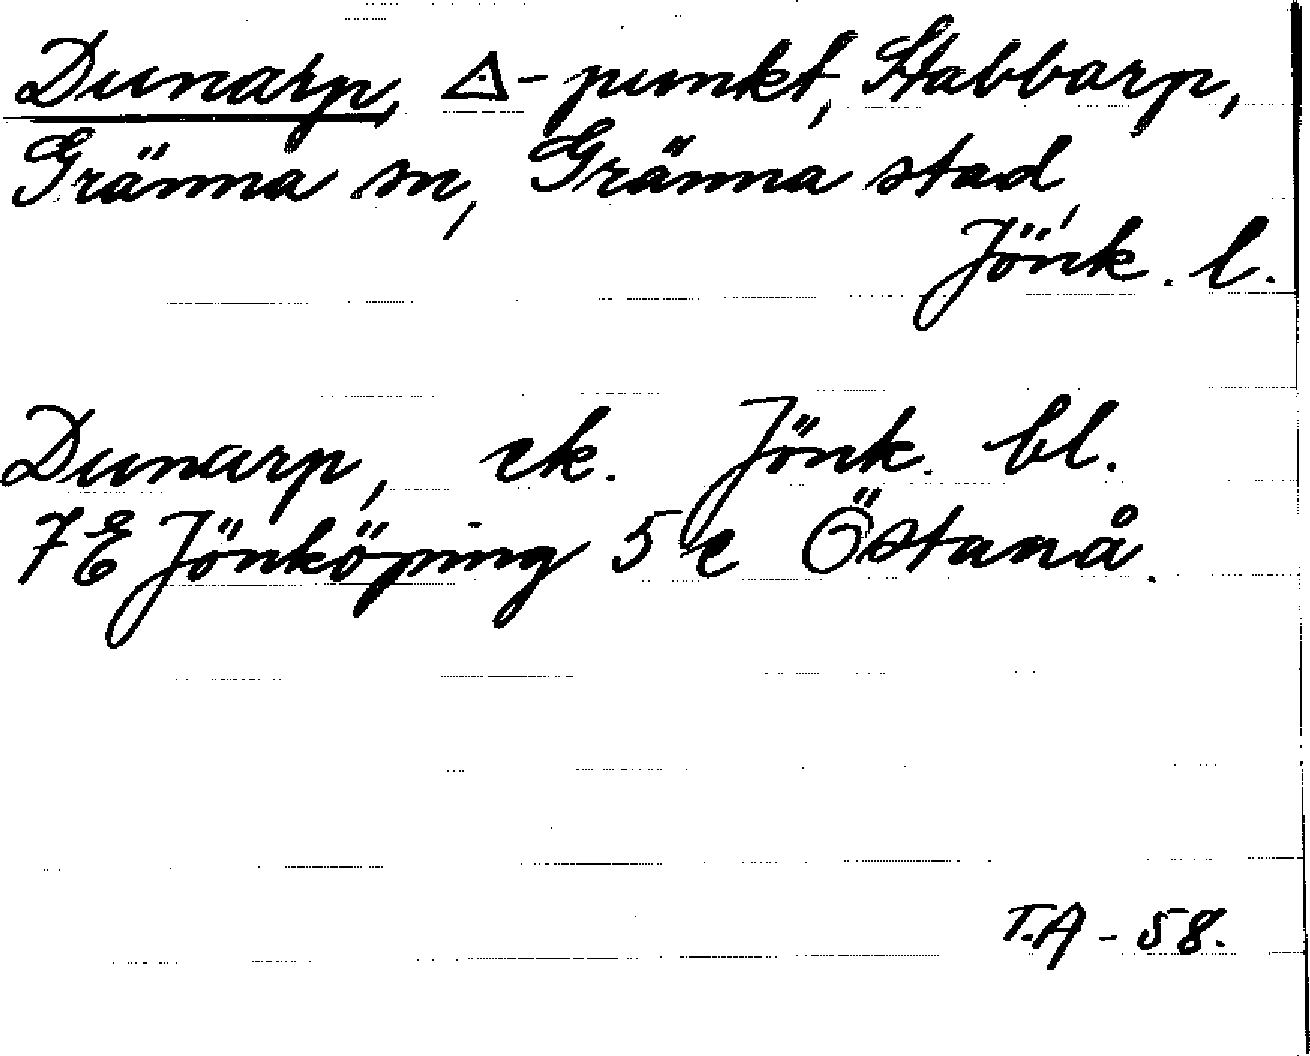 Dunarp, △-punkt, Stabbarp,
Gränna sn, Gränna stad,
Jönk. l.
Dunarp, ek. Jönk. bl.
7E Jönköping 5 e Östanå.
T.A - 58.